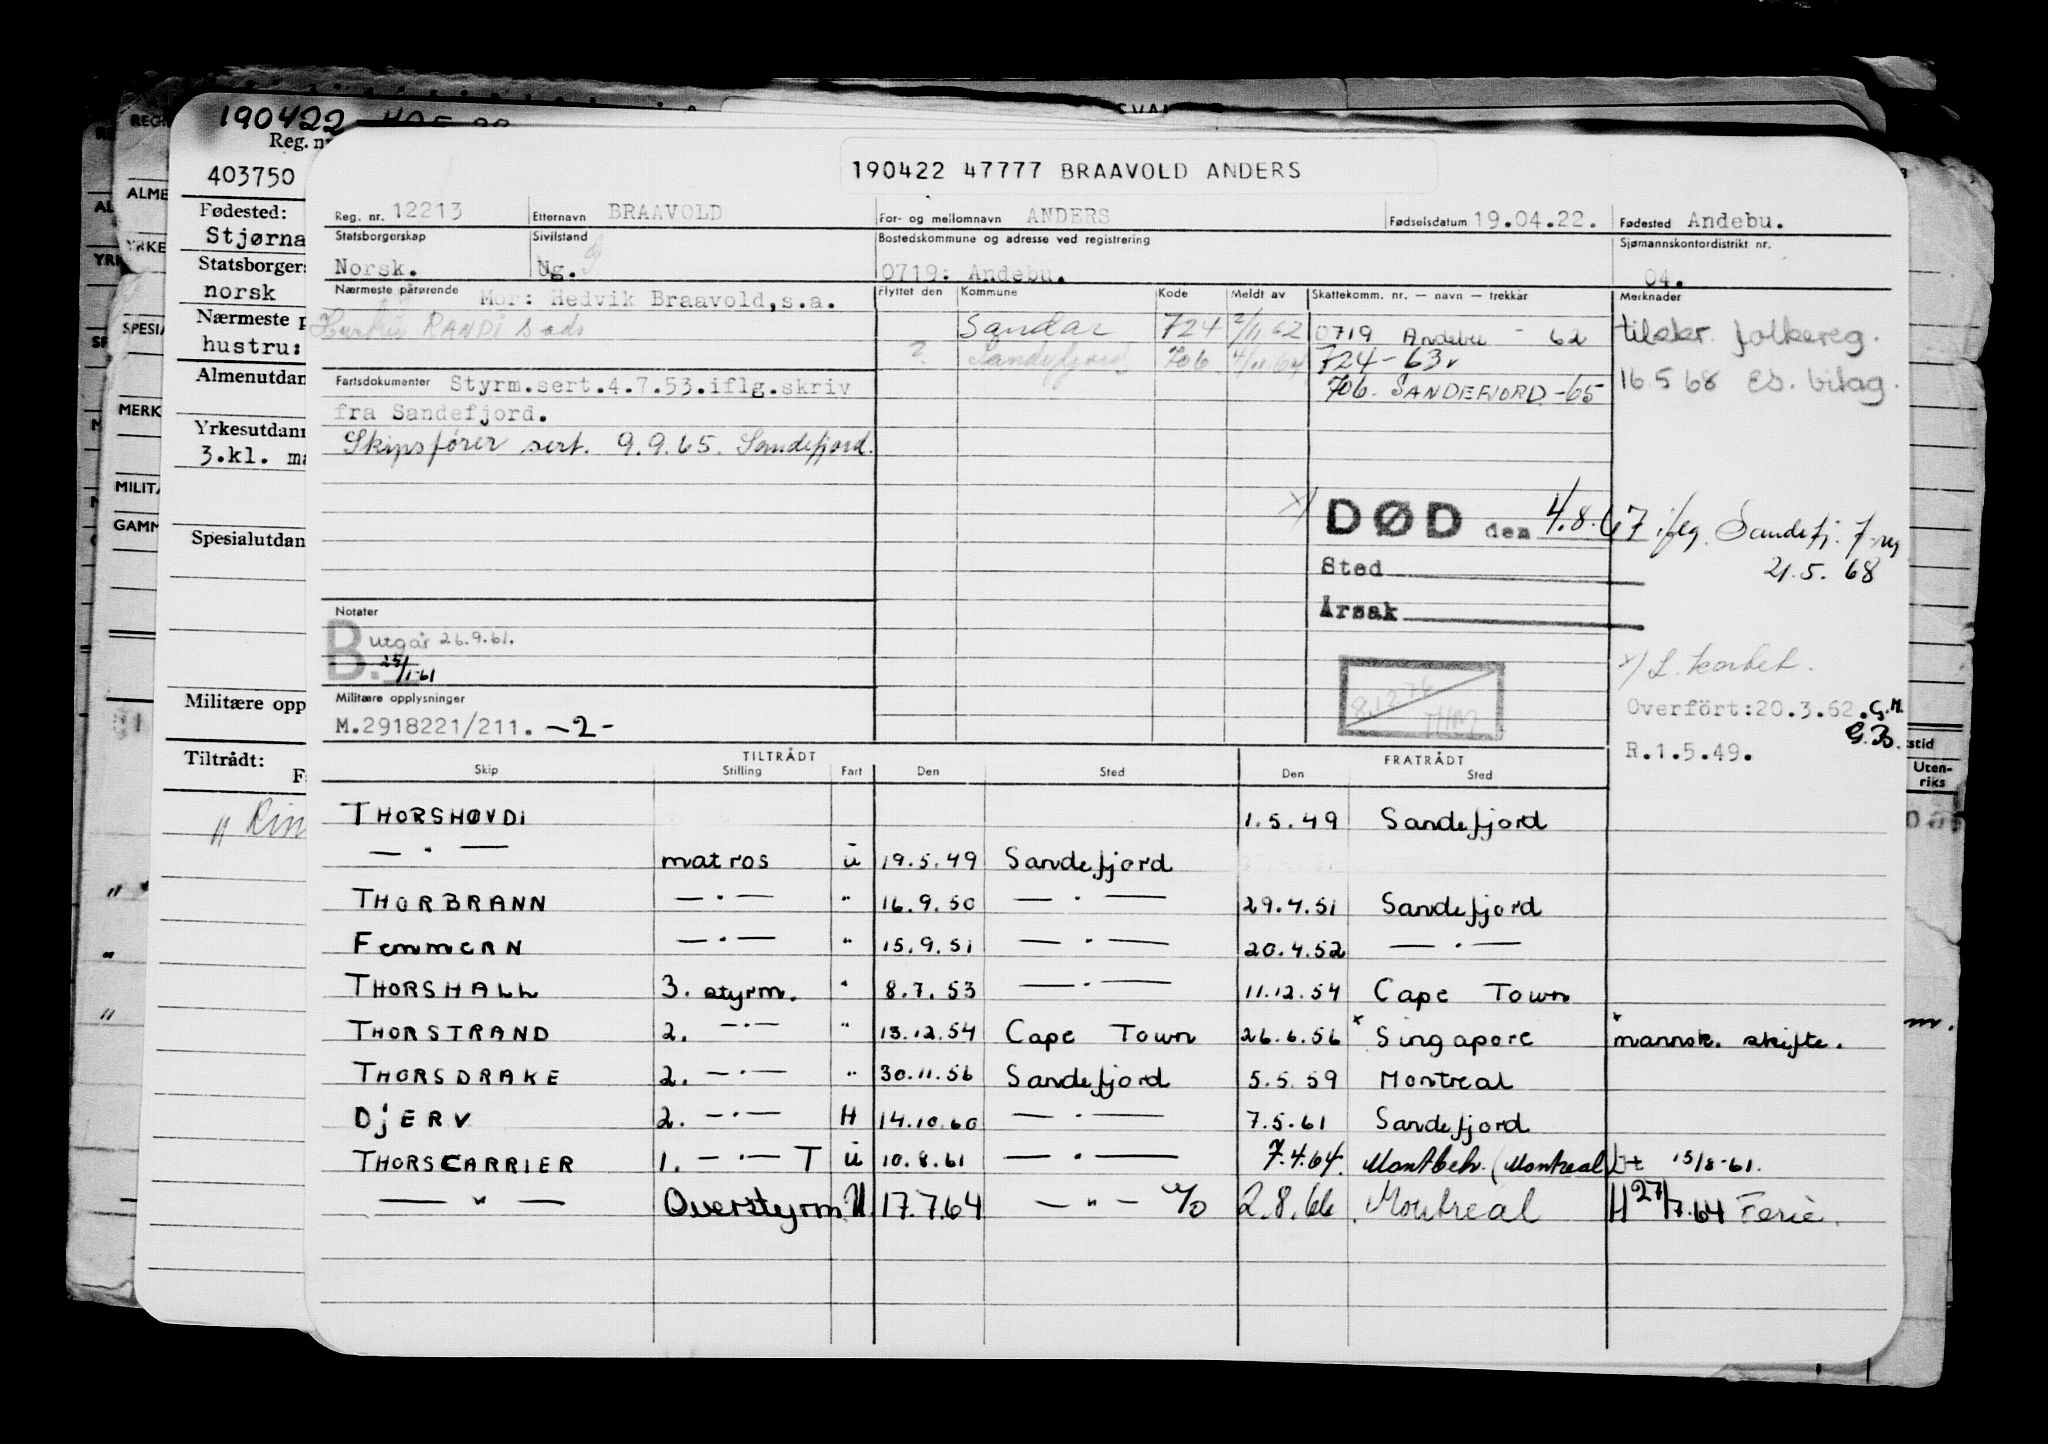 190422
190422 47777 BRAAVOLD ANDERS
Reg. nr. 12213 Etternavn BRAAVOLD For- og mellomnavn ANDERS Fødselsdatum 19.04.22. Fødested Andebu.
Statsborgerskap Sivilstand Bostedskommune og adresse ved registrering Sjømannskontordistrikt nr.
Norsk. Ug. 0719: Andebu. 04.
Nærmeste pårørende Mor: Hedvik Braavold, s.a. Flyttet den Kommune Kode Meldt av Skattekomm. nr. — navn — trekkår Merknader
Hustru RANDI s ads Sandar 724 2/11.62 0719 Andebu - 62 tilskr. folkereg.
? Sandefjord 706 4/11.64 724 - 63 16.5 68 es. bilag.
706. SANDEFJORD -65
Fartsdokumenter Styrm.sert.4.7.53.iflg.skriv
fra Sandefjord.
Skipsfører sert. 9.9.65. Sandefjord.
x) DØD den 4.8.67 iflg. Sandefj. f.reg
21.5. 68
Sted
Årsak
Notater
B. utgår 26.9.61.
25/1-61
x) L. kartot.
8.12 76
THM
Militære opplysninger
M.2918221/211. -2-
Overfört:20.3.62. G.M.
G.B.
R.1.5.49.
TILTRÅDT FRATRÅDT
Skip Stilling Fart Den Sted Den Sted
THORSHØVDI 1.5.49 Sandefjord
— " — matros u 19.5.49 Sandefjord
THORBRANN — " — " 16.9.50 — " — 29.4.51 Sandefjord
FEMMERN — " — " 15.9.51 — " — 20.4.52 — " —
THORSHALL 3. styrm. " 8.7.53 — " — 11.12.54 Cape Town
THORSTRAND 2. — " — " 13.12.54 Cape Town 26.6.56 x Singapore x mannsk. skifte.
THORSDRAKE 2. — " — " 30.11.56 Sandefjord 5.5.59 Montreal
DJERV 2. — " — H 14.10.60 — " — 7.5.61 Sandefjord
THORSCARRIER 1. — " — T u 10.8.61 — " — 7.4.64. Montbeh. (Montreal) Ut 15/8-61.
— " — Overstyrm U 17.7.64 — " — 2.8.66. Montreal H 27/7.64 Ferie.
Reg. nr
403750
Fødested:
Stjørna
Statsborgers
norsk
Nærmeste p
hustru:
Almenutdan
Yrkesutdann
3.kl. ma
Spesialutdan
Militære opp
Tiltrådt:
F
" Rin
REG
ALME
YRKE
SPESIA
MERK
MILITÆ
GAMM
stid
Uten-
riks
m.